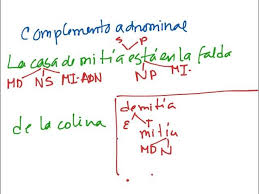 Complemento adnominal
S P
La casa de mi tía está en la falda
MD NS MI.ADN NP MI.
de la colina
de mi tía
E T
mi tía
MD N